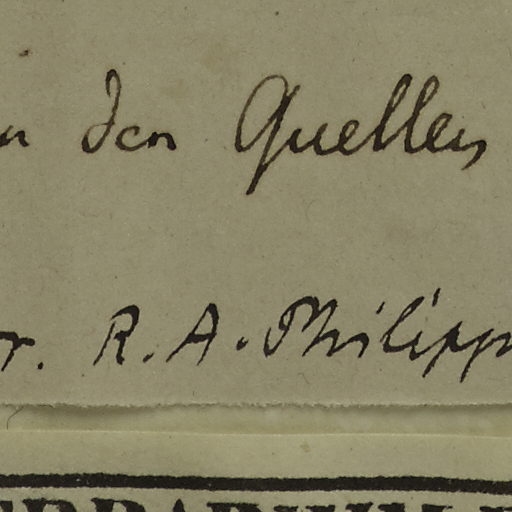 den Quellen
r. R. A. Philippi